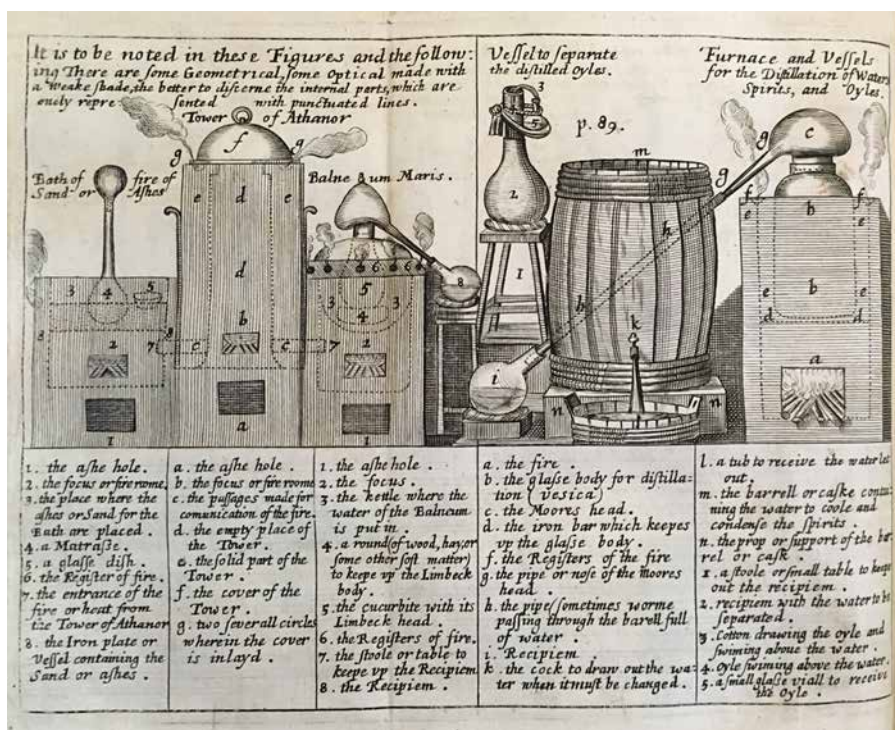 It is to be noted in theſe Figures and the follow:
ing There are ſome Geometrical, ſome Optical made with
a weake ſhade, the better to diſcerne the internal parts, which are
onely repre ſented with punctuated lines.
Tower of Athanor
Bath of fire of
Sand or Aſhes
Balne um Maris.
Veſſel to ſeparate
the diſtilled Oyles.
p. 89.
Furnace and Veſſels
for the Diſtillation of Waters
Spirits, and Oyles.
f
g g
e d e
d
b
c c
a
3 4 5
8
2
1
7 7
6 6 6
5
3 4 3
2
1
8
3
5
2
1
m
g
h
h
k
i
n n
g c
f b f
e e
b
e e
d d
a
1. the aſhe hole.
2. the focus or fire rome.
3. the place where the
aſhes or Sand for the
Bath are placed.
4. a Matraſse.
5. a glaſſe diſh.
6. the Regiſter of fire.
7. the entrance of the
fire or heat from
the Tower of Athanor
8. the Iron plate or
Veſſel containing the
Sand or aſhes.
a. the aſhe hole.
b. the focus or fire roome
c. the paſſages made for
comunication of the fire.
d. the empty place of
the Tower.
e. the ſolid part of the
Tower.
f. the cover of the
Tower.
g. two ſeverall circles
wherein the cover
is inlayd.
1. the aſhe hole.
2. the focus.
3. the kettle where the
water of the Balneum
is put in.
4. a round (of wood, hay, or
ſome other ſoft matter)
to keepe up the Limbeck
body.
5. the cucurbite with its
Limbeck head.
6. the Regiſters of fire.
7. the ſtoole or table to
keepe vp the Recipiem
8. the Recipiem.
a. the fire.
b. the glaſſe body for diſtilla-
tion (veſica)
c. the Moores head.
d. the iron bar which keepes
vp the glaſſe body.
f. the Regiſters of the fire
g. the pipe or noſe of the moores
head.
h. the pipe ſometimes worme
paſſing through the barell full
of water.
i. Recipiem.
k. the cock to draw out the wa-
ter when it muſt be changed.
l. a tub to receive the water let
out.
m. the barrell or caſke contai
ning the water to coole and
condenſe the ſpirits.
n. the prop or ſupport of the bar
rel or caſk.
1. a ſtoole or ſmall table to keepe
out the recipiem.
2. recipiem with the water to be
ſeparated.
3. Cotton drawing the oyle and
ſwiming aboue the water.
4. Oyle ſwiming aboue the water.
5. a ſmall glaſſe viall to receive
the Oyle.